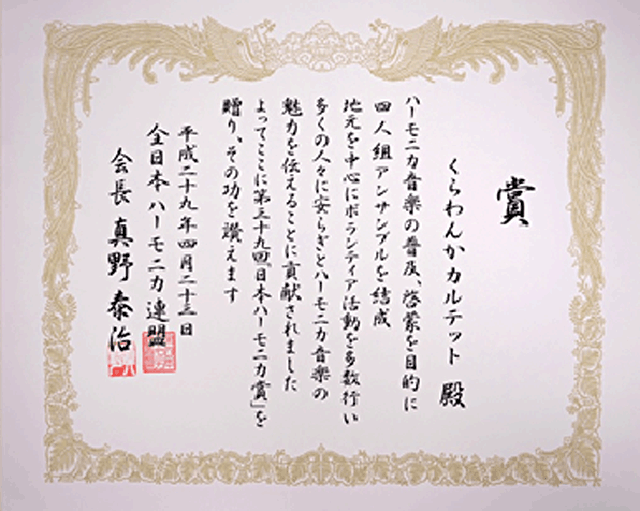 賞
くらわんかカルテット 殿
ハーモニカ音楽の普及、啓蒙を目的に
四人組アンサンブルを結成
地元を中心にボランティア活動を多数行い
多くの人々に安らぎとハーモニカ音楽の
魅力を伝えることに貢献されました
よってここに第三十九回「日本ハーモニカ賞」を
贈り、その功を讃えます
平成二十九年四月二十三日
全日本ハーモニカ連盟
会長 真野泰治